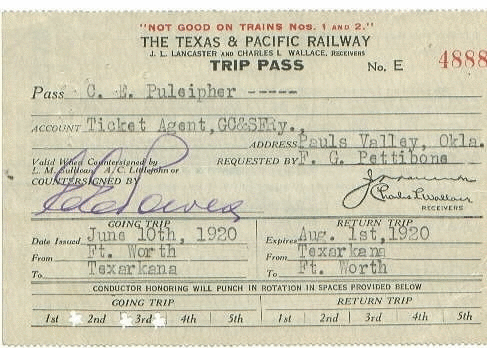 "NOT GOOD ON TRAINS Nos. 1 AND 2."
THE TEXAS & PACIFIC RAILWAY
J. L. LANCASTER AND CHARLES L WALLACE, RECEIVERS
TRIP PASS No. E 4888
Pass C. E. Puleipher -----
ACCOUNT Ticket Agent, GC&SFRy.,
ADDRESS Pauls Valley, Okla.
Valid When Countersigned by REQUESTED BY F. G. Pettibone
L. M. Sullivan, A/C. Littlejohn or
COUNTERSIGNED BY
Charles L Wallace
RECEIVERS
GOING TRIP RETURN TRIP
Date Issued June 10th, 1920 Expires Aug. 1st, 1920
From Ft. Worth From Texarkana
To Texarkana To Ft. Worth
CONDUCTOR HONORING WILL PUNCH IN ROTATION IN SPACES PROVIDED BELOW
GOING TRIP RETURN TRIP
1st 2nd 3rd 4th 5th 1st 2nd 3rd 4th 5th